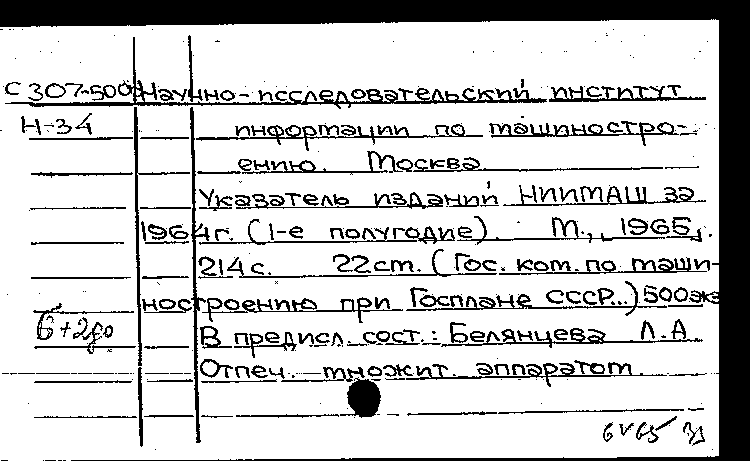 С 307-500 Научно-исследовательский институт
Н-34 информации по машиностро-
ению. Москва
Указатель изданий НИИМАШ за
1964г. (1-е полугодие). М., 1965.
214с. 22см. (Гос. ком. по маши-
ностроению при Госплане СССР...) 500экз
В предисл. сост.: Белянцева Л.А
Отпеч. множит. аппаратом.